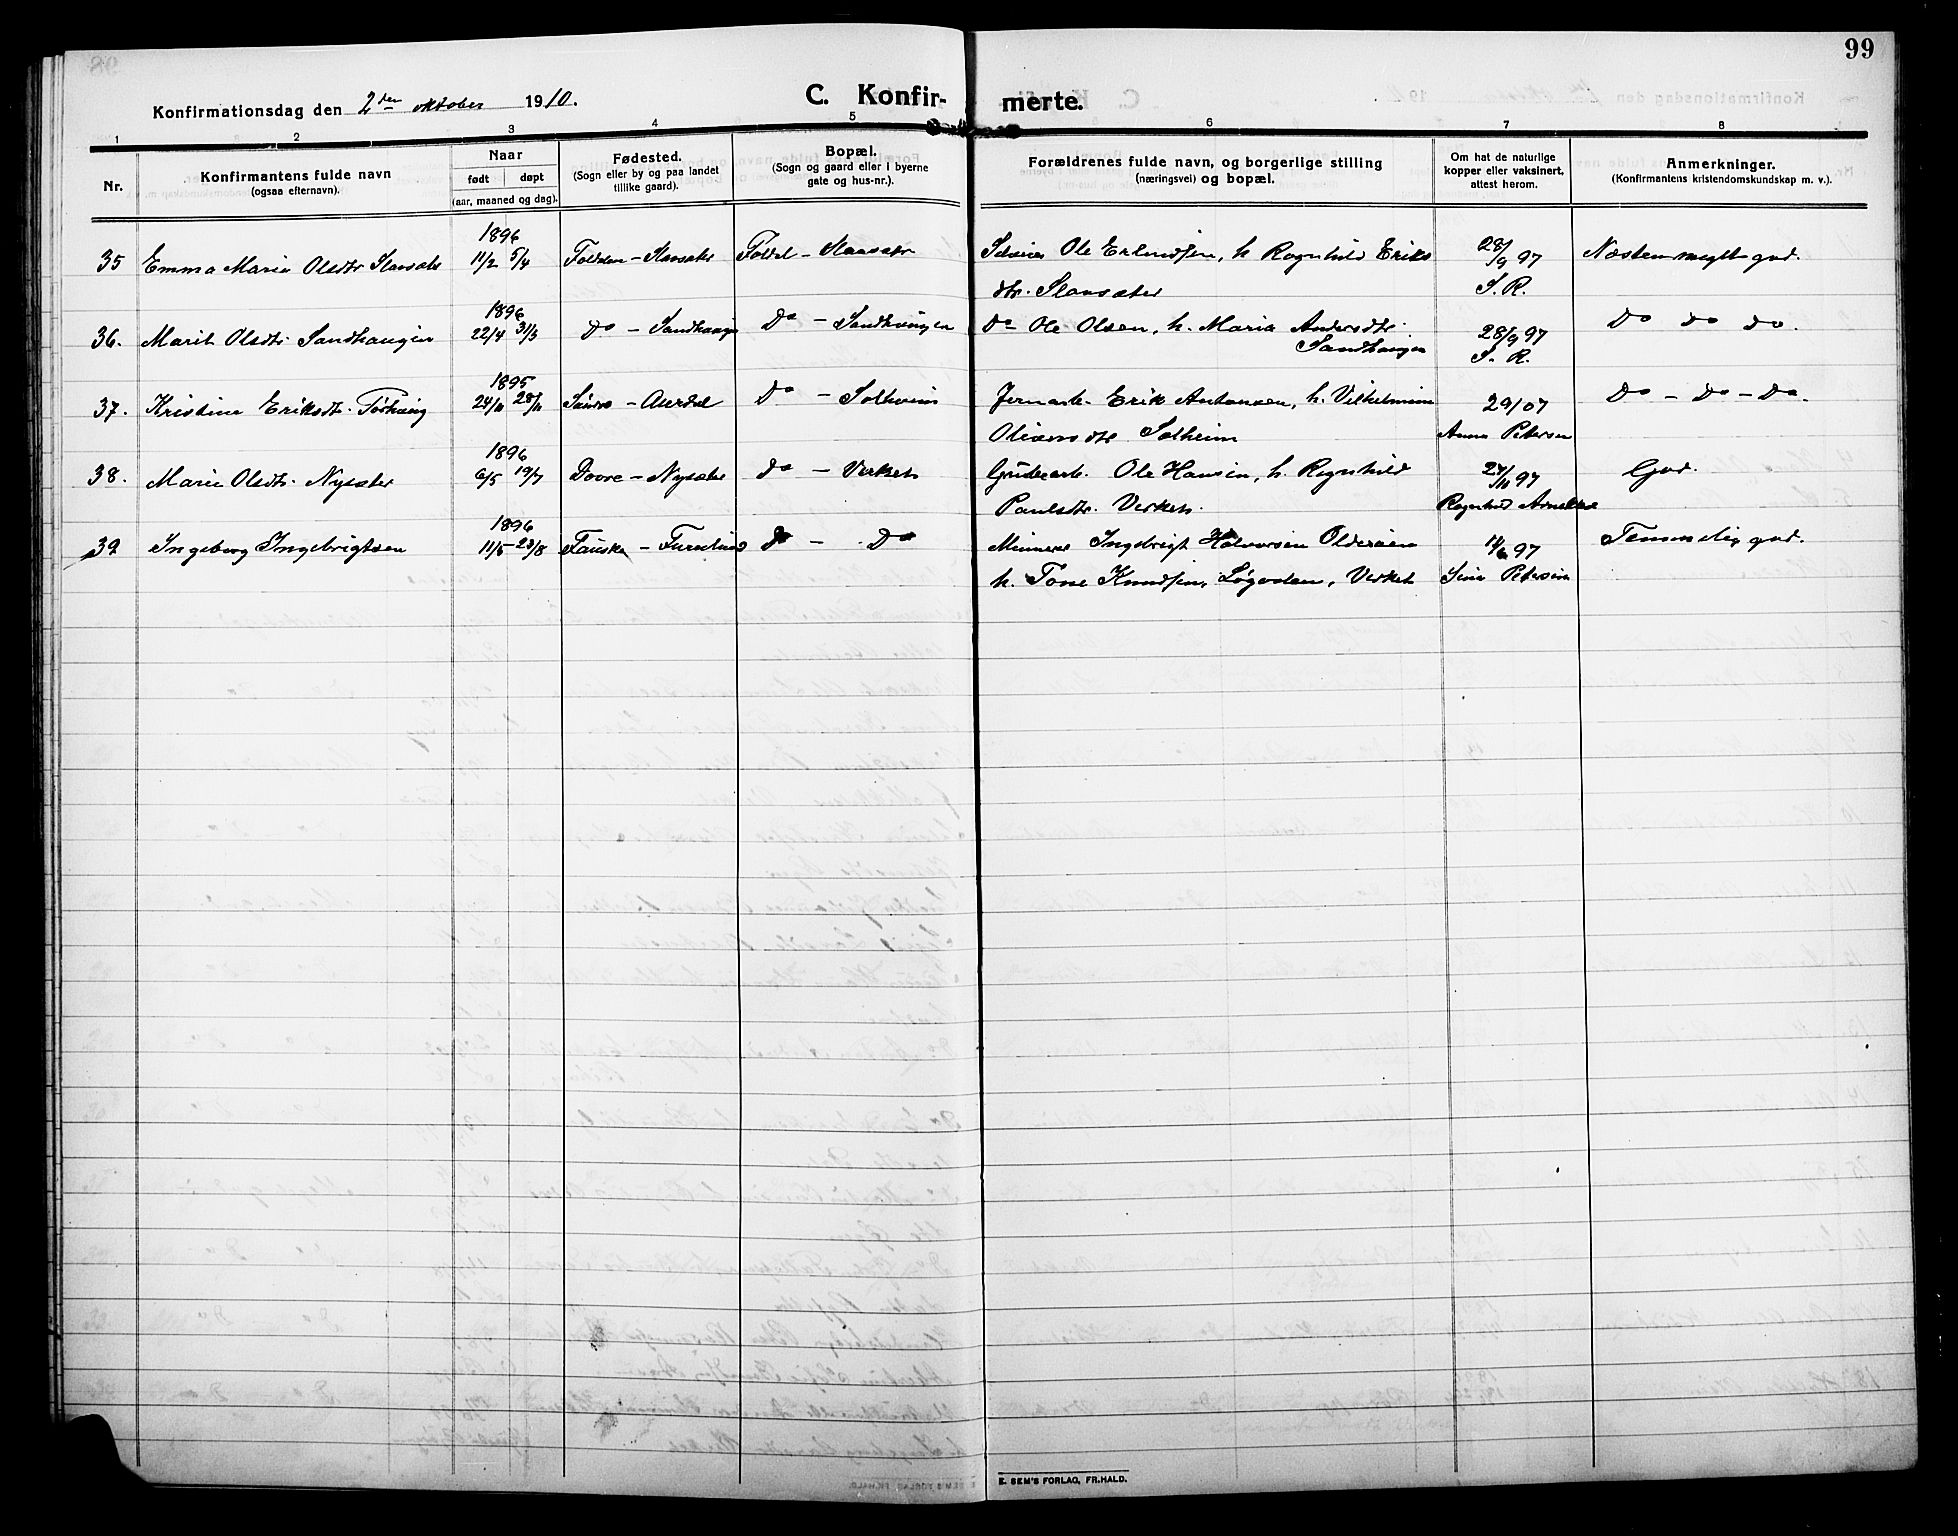 99
Konfirmationsdag den 2den oktober 1910.
C. Konfir- merte.
1 2 3 4 5 6 7 8
Nr.
Konfirmantens fulde navn
(ogsaa efternavn).
Naar
født døpt
(aar, maaned og dag).
Fødested.
(Sogn eller by og paa landet
tillike gaard).
Bopæl.
(Sogn og gaard eller i byerne
gate og hus-nr.).
Forældrenes fulde navn, og borgerlige stilling
(næringsvei) og bopæl.
Om hat de naturlige
kopper eller vaksinert,
attest herom.
Anmerkninger.
(Konfirmantens kristendomskundskap m. v.).
1896
35 Emma Marie Olsdtr. 11/2 5/4 Folldal Ole Erlendsen, h. Ragnhild Eriks 28/9 97 Næsten meget god.
dtr. S. R.
1896
36. Marit Olsdtr. Sandhaugen 22/4 31/5 Do – Sandhaugen Do – Sandhaugen Do Ole Olsen, h. Maria Andersdtr. 28/9 97 Do do do.
Sandhaugen S. R.
1895
37. Kristine Eriksdtr. 24/11 28/11 Do – Solheim Jernarb. Erik Antonsen, h. Vilhelmine 29/07 Do – Do – Do.
Solheim Anna Petersen
1896
38. Marie Olsdtr. Nysæter 6/5 19/7 Dovre – Nysæter Do – Verket Grubearb. Ole Hansen, h. Ragnhild 97 God.
Paulsdtr. Verket. Ragnhild
1896
39 Ingeborg Ingebrigtsen 11/5 23/8 Fauske – Furulund Do – Do Minerer Ingebrigt Halvorsen 97 Temmelig god.
h. Tone Knudsen, Verket Petersen
E. SEM'S FORLAG, FR.HALD.